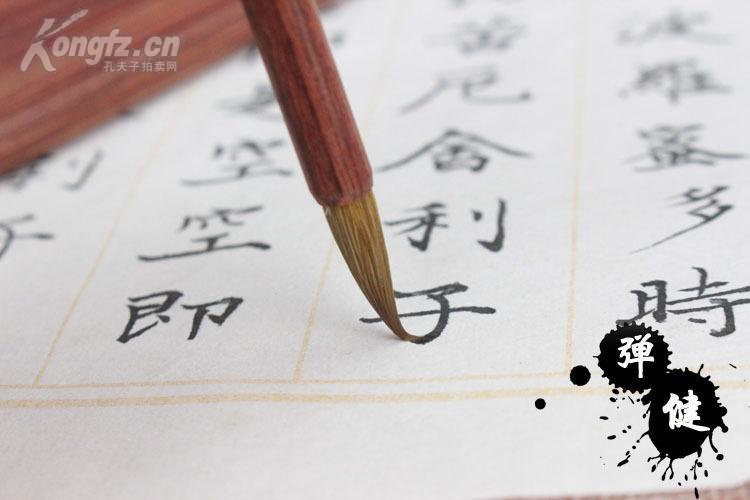 Kongfz.cn
孔夫子拍卖网
波羅蜜多時
苦厄舍利子
是空空即
利子
弹健